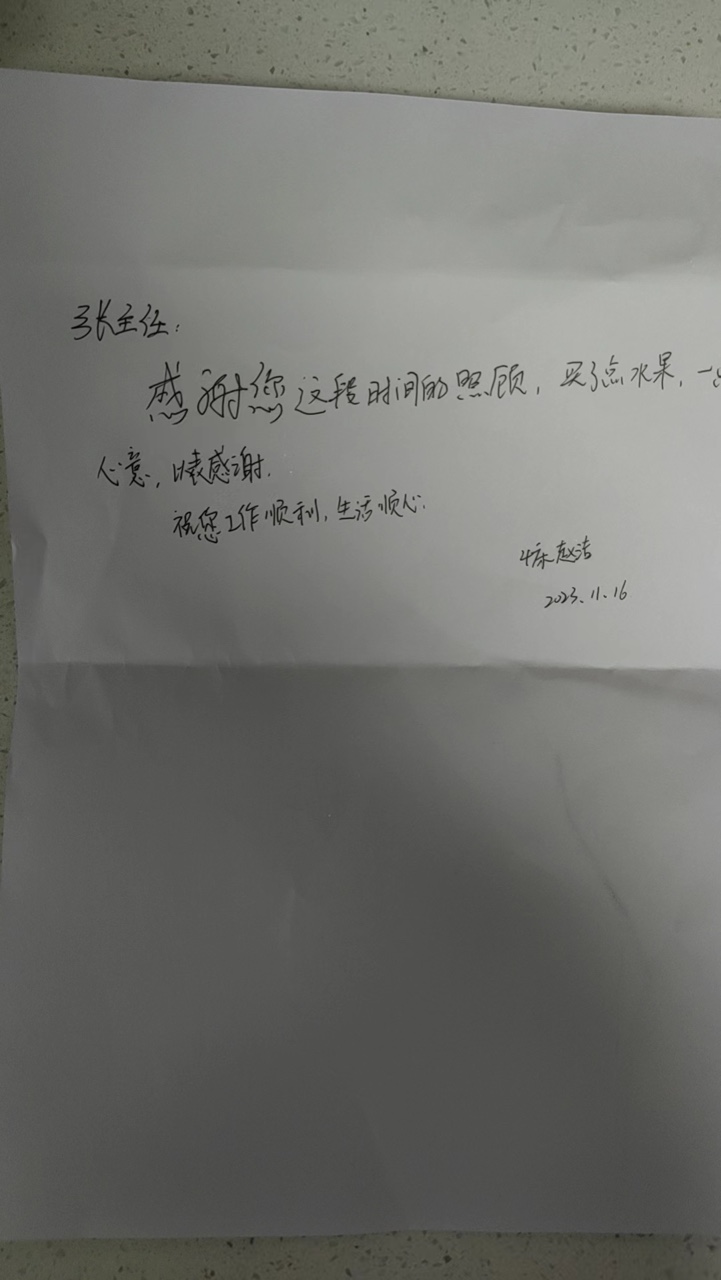 张主任:
感谢您这段时间的照顾,买了点水果,一
心意,以表感谢.
祝您工作顺利,生活顺心.
4床赵洁
2023.11.16